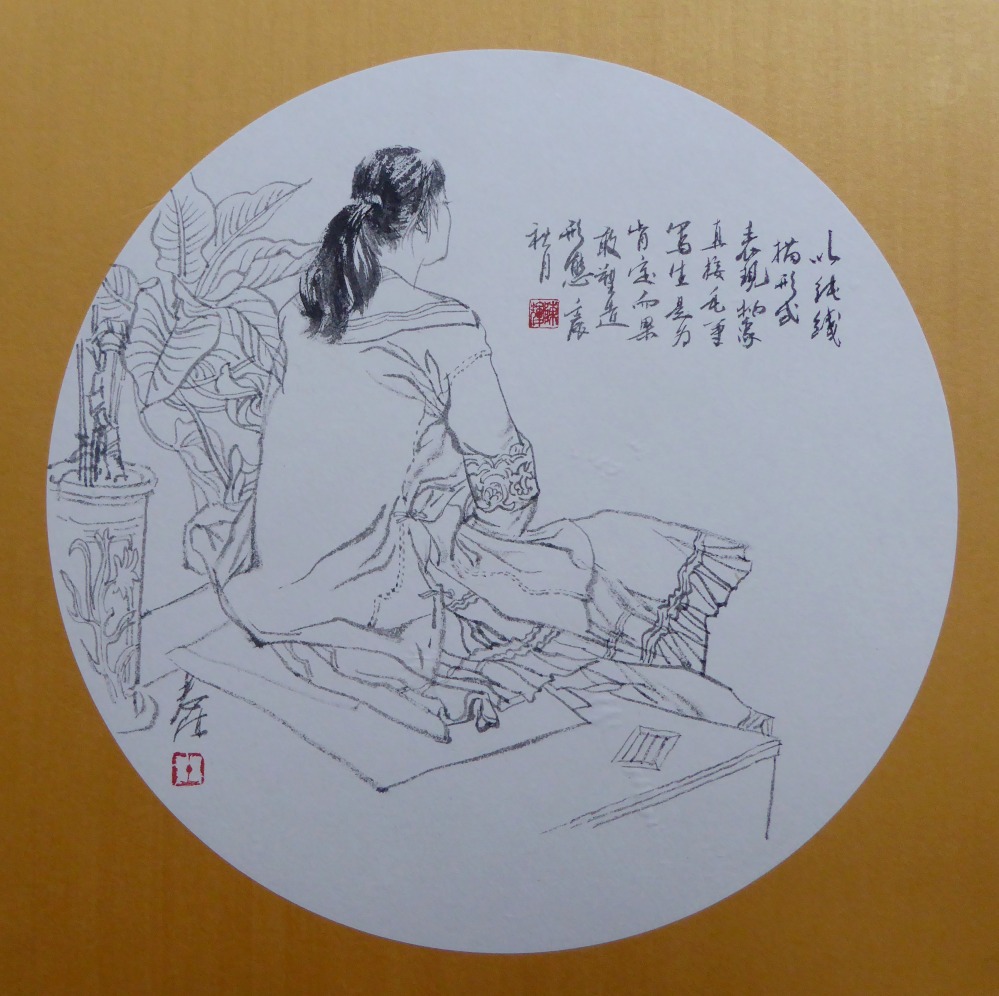 以纯线
描形式
表现物象
直接毛笔
写生是为
肯定而果
敢塑造
形态
秋月